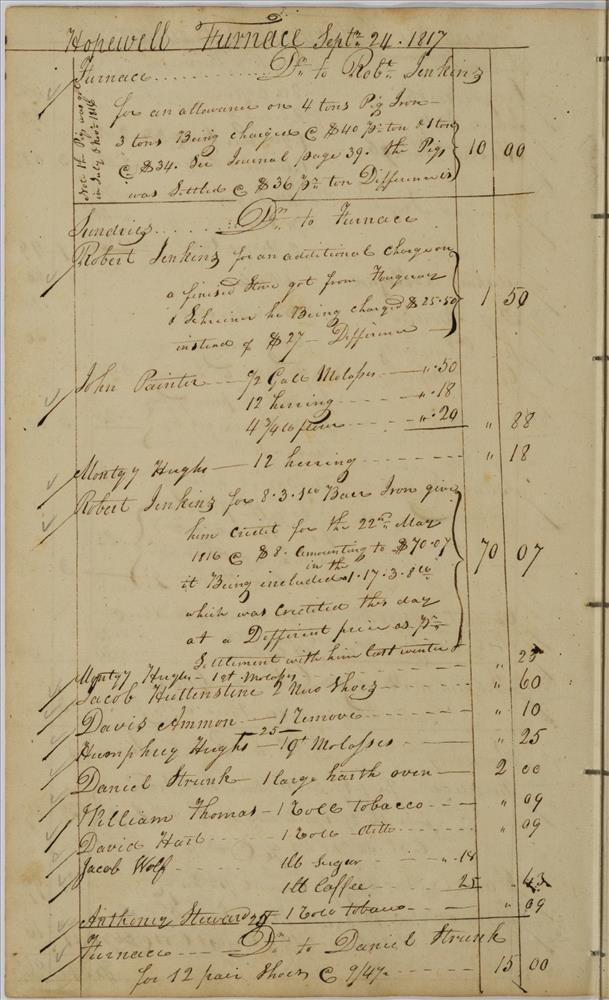 Hopewell Furnace Septr 24. 1817
Furnace .............. Dr. to Robt. Jenkins
Note the Pigs was got
in July & Novr 1816
for an allowance on 4 tons Pig Iron —
3 tons Being charged @ $40 Pr ton & 1 ton
@ $34. See Journal page 39. the Pigs
was Settled @ $36 pr ton Difference is 10 00
Sundries ....... Drs. to Furnace
Robert Jenkins for an additional charge on
a finised Stove got from
& Schreiner he Being charged $25.50
instead of $27 — Difference — 1 50
John Painter — 1/2 Gall Molasses — ".50
12 herring - - - - ".18
4 3/4 lb flour - - - - ".20 " 88
Montgy Hughs — 12 herring - - - - - - - " 18
Robert Jenkins for 8.3.1 lb Barr Iron give
him credit for the 22nd May
1816 @ $8. amounting to $70.07
it Being included in the 1.17.3.8 lb 70 07
which was creditid this day
at a Different price as Pr
Settlement with him last winter
Montgy Hughs - 1 qt Molasses - - - - " 25
Jacob Huttenstine 2 New Shoes - - - - " 60
Davis Ammon — 1 Remove - - - - - " 10
Humphrey Hughs — 25 — 1 qt Molasses - - - " 25
Daniel Strunk — 1 large harth oven — 2 00
William Thomas — 1 Roll tobacco - - - " 09
David Hart - - - 1 Roll ditto - - - " 09
Jacob Wolf - - - 1 lb Sugar - - - ".18
1 lb Coffee - - - 25 " 43
Anthoney Steward 25 1 Roll tobacco - - - " 09
Furnace — Dr. to Daniel Strunk
for 12 pair Shoes @ 9/4 1/2 - - - - 15 00